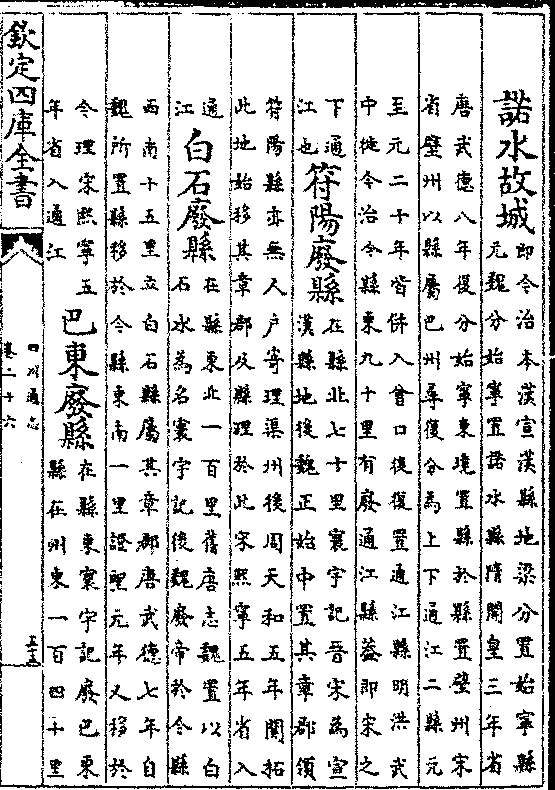 諾水故城
即今治本漢宣漢縣地梁分置始寧縣
元魏分始寧置諾水縣隋開皇三年省
唐武德八年復分始寧東境置縣於縣置璧州宋
省璧州以縣屬巴州尋復分為上下通江二縣元
至元二十年皆併入曾口後復置通江縣明洪武
中徙今治今縣東九十里有廢通江縣葢即宋之
下通
江也
符陽廢縣
在縣北七十里寰宇記晉宋為宣
漢縣地後魏正始中置其章郡領
符陽縣亦無人户寄理渠州後周天和五年開拓
此地始移其章郡及縣理於此宋熙寧五年省入
通
江
白石廢縣
在縣東北一百里舊唐志魏置以白
石水為名寰宇記後魏廢帝於今縣
西南十五里立白石縣屬其章郡唐武德七年自
魏所置縣移於今縣東南一里證聖元年又移於
今理宋熙寧五
年省入通江
巴東廢縣
在縣東寰宇記廢巴東
縣在州東一百四十里
欽定四庫全書
四川通志
卷二十六